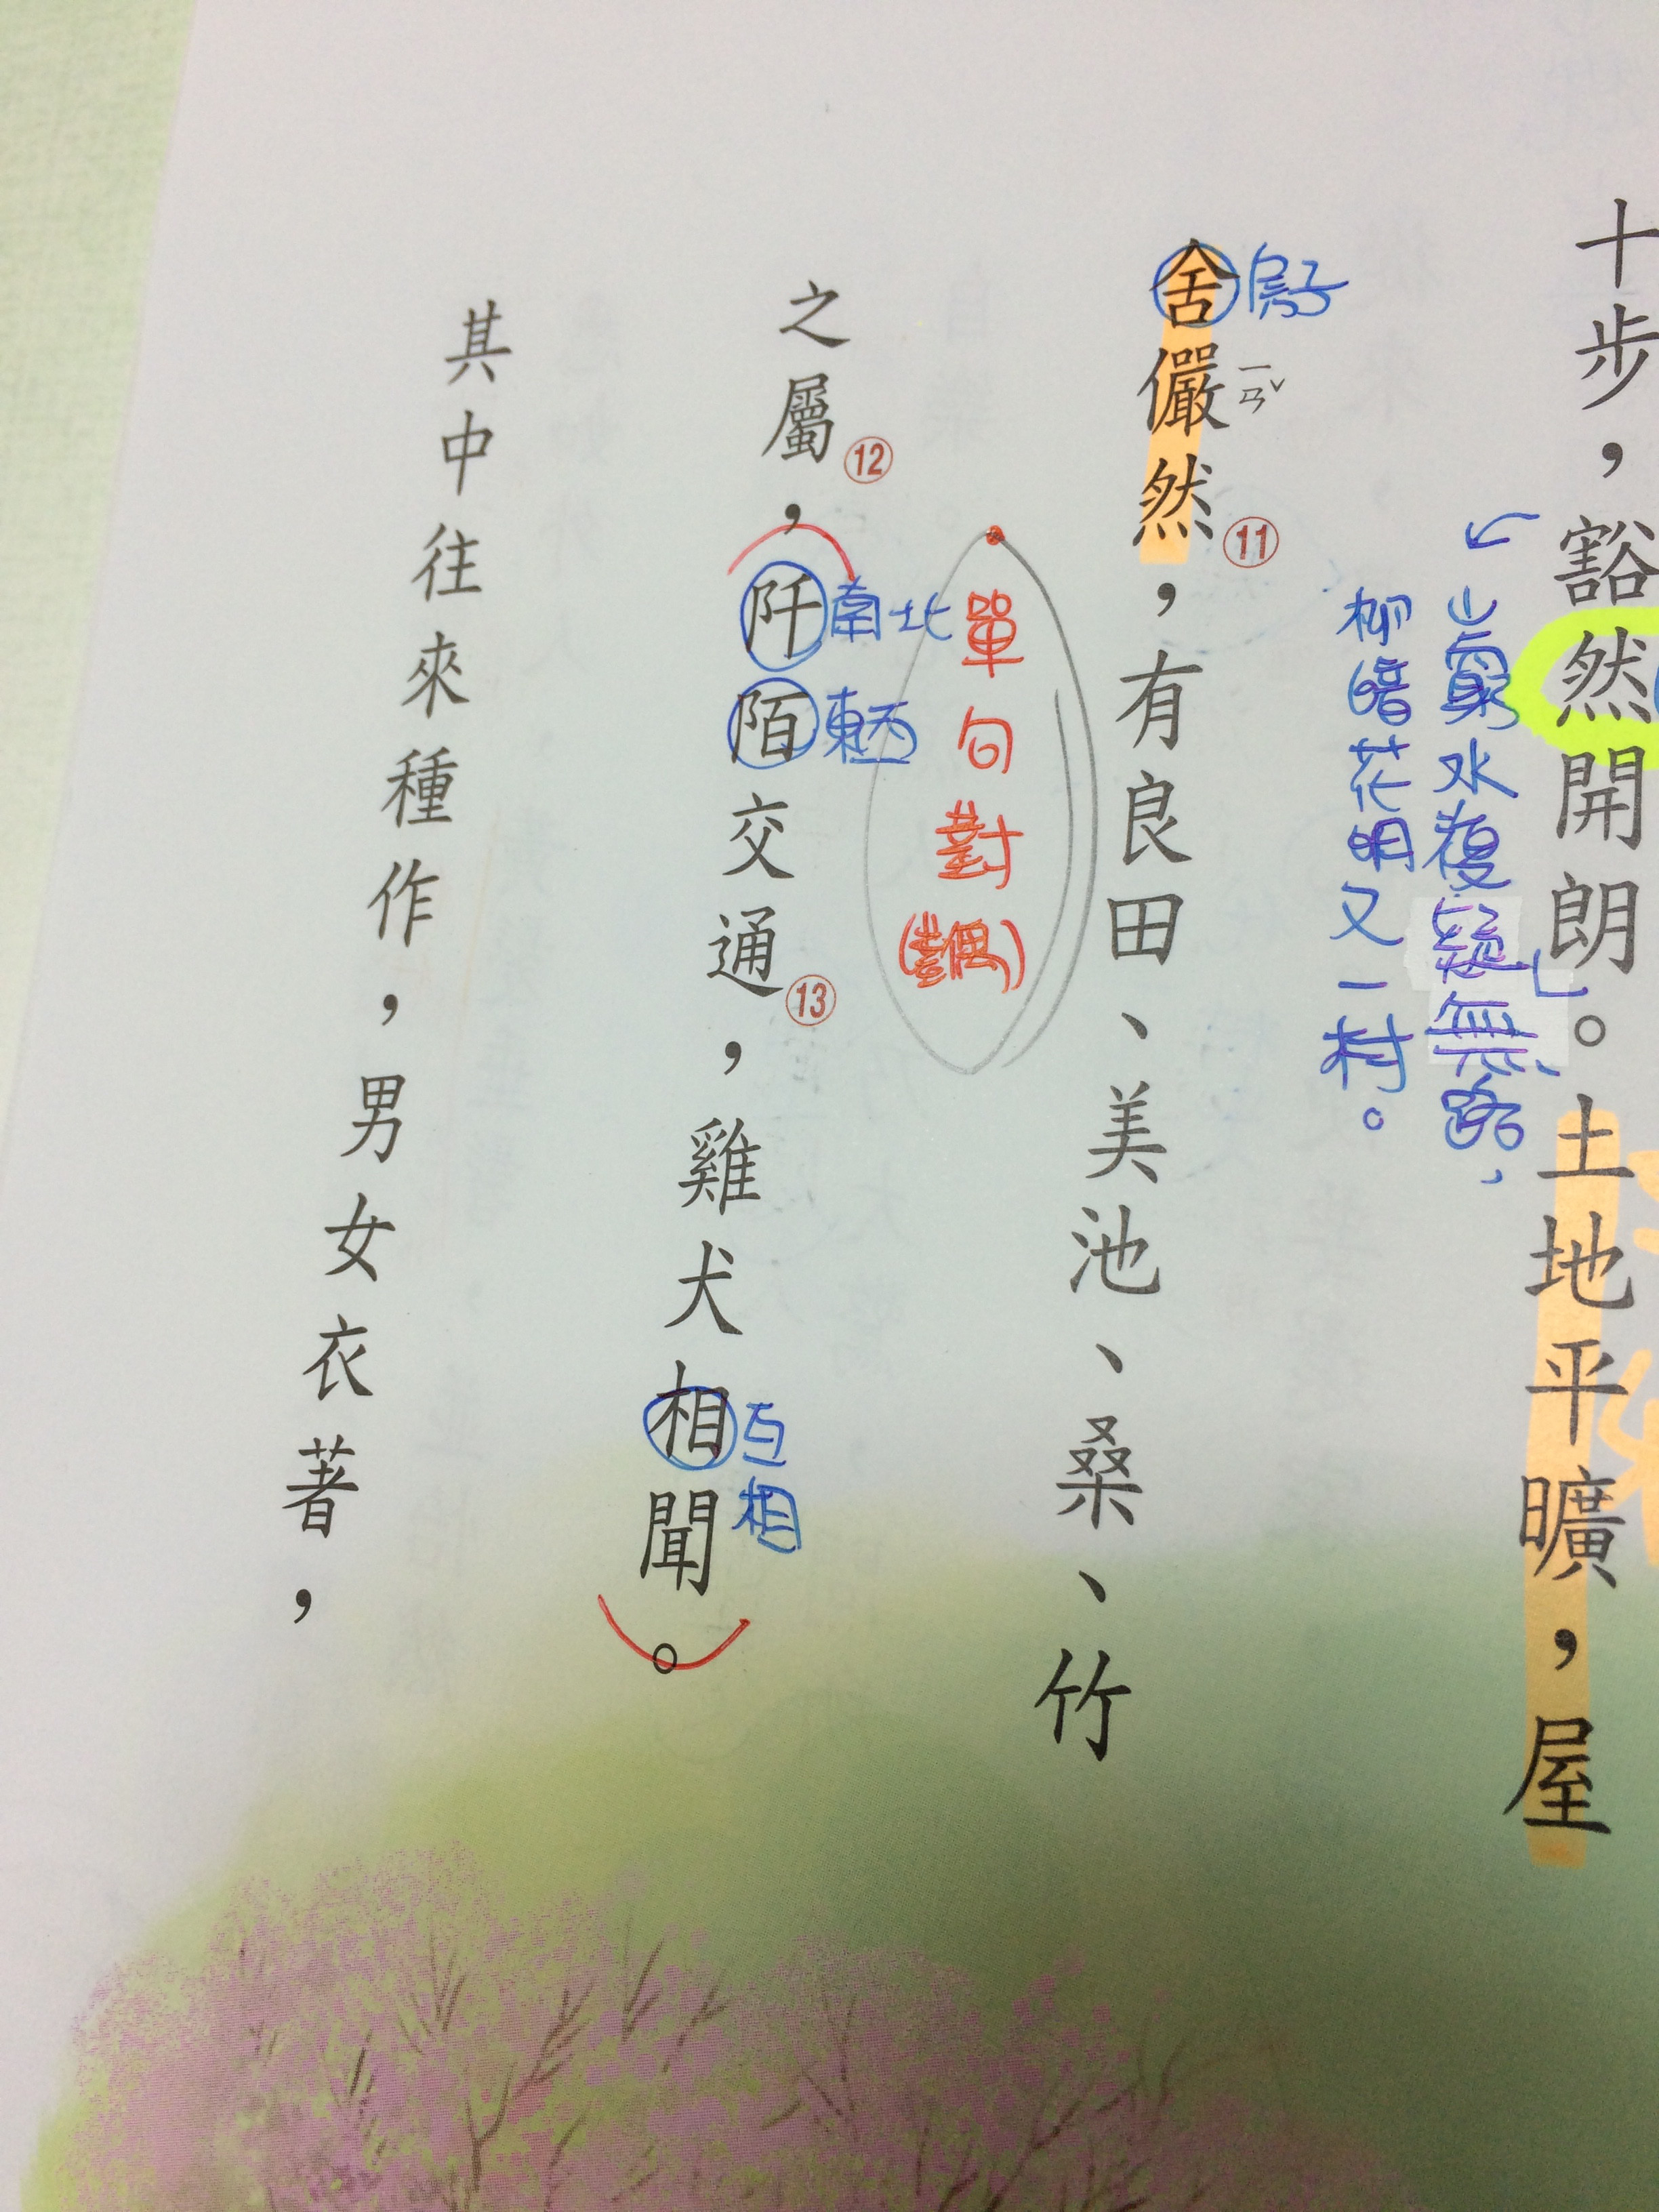 十步，豁然開朗。土地平曠，屋
山窮水複疑無路，
柳暗花明又一村。
舍儼然⑪，有良田、美池、桑、竹
房子
ㄧㄢˇ
單句對
(對偶)
之屬⑫，阡陌交通⑬，雞犬相聞。
南北
東西
互相
其中往來種作，男女衣著，